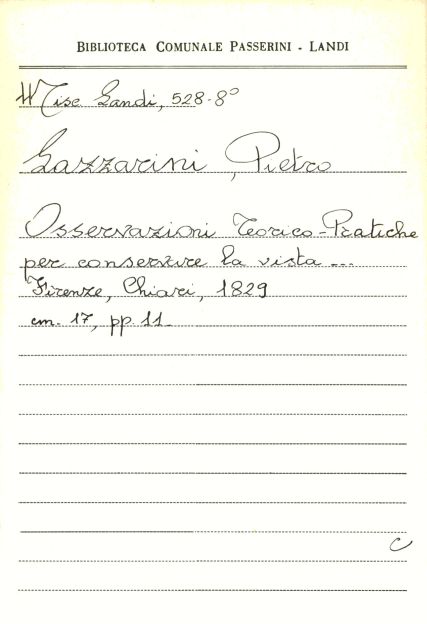 BIBLIOTECA COMUNALE PASSERINI - LANDI
Misc Landi, 528-8°
Lazzarini, Pietro
Osservazioni Teorico-Pratiche
per conservare la vista ...
Firenze, Chiari, 1829
cm. 17, pp. 11
C